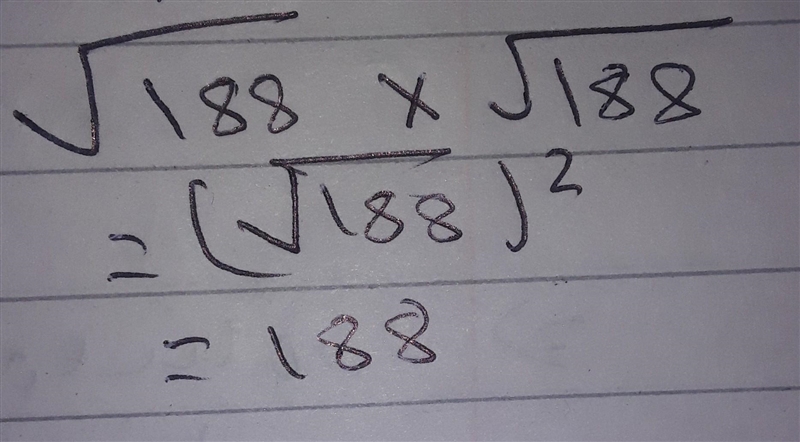 √188 × √188
= (√188)²
= 188